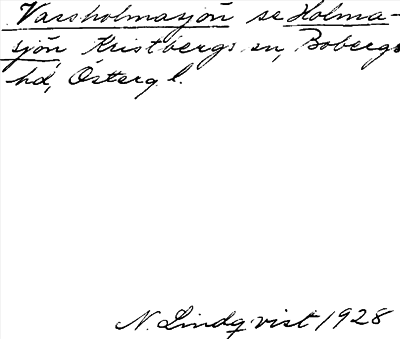 Varsholmasjön se Holma-
sjön Kristbergs sn, Bobergs
hd, Östergl.
N. Lindqvist 1928